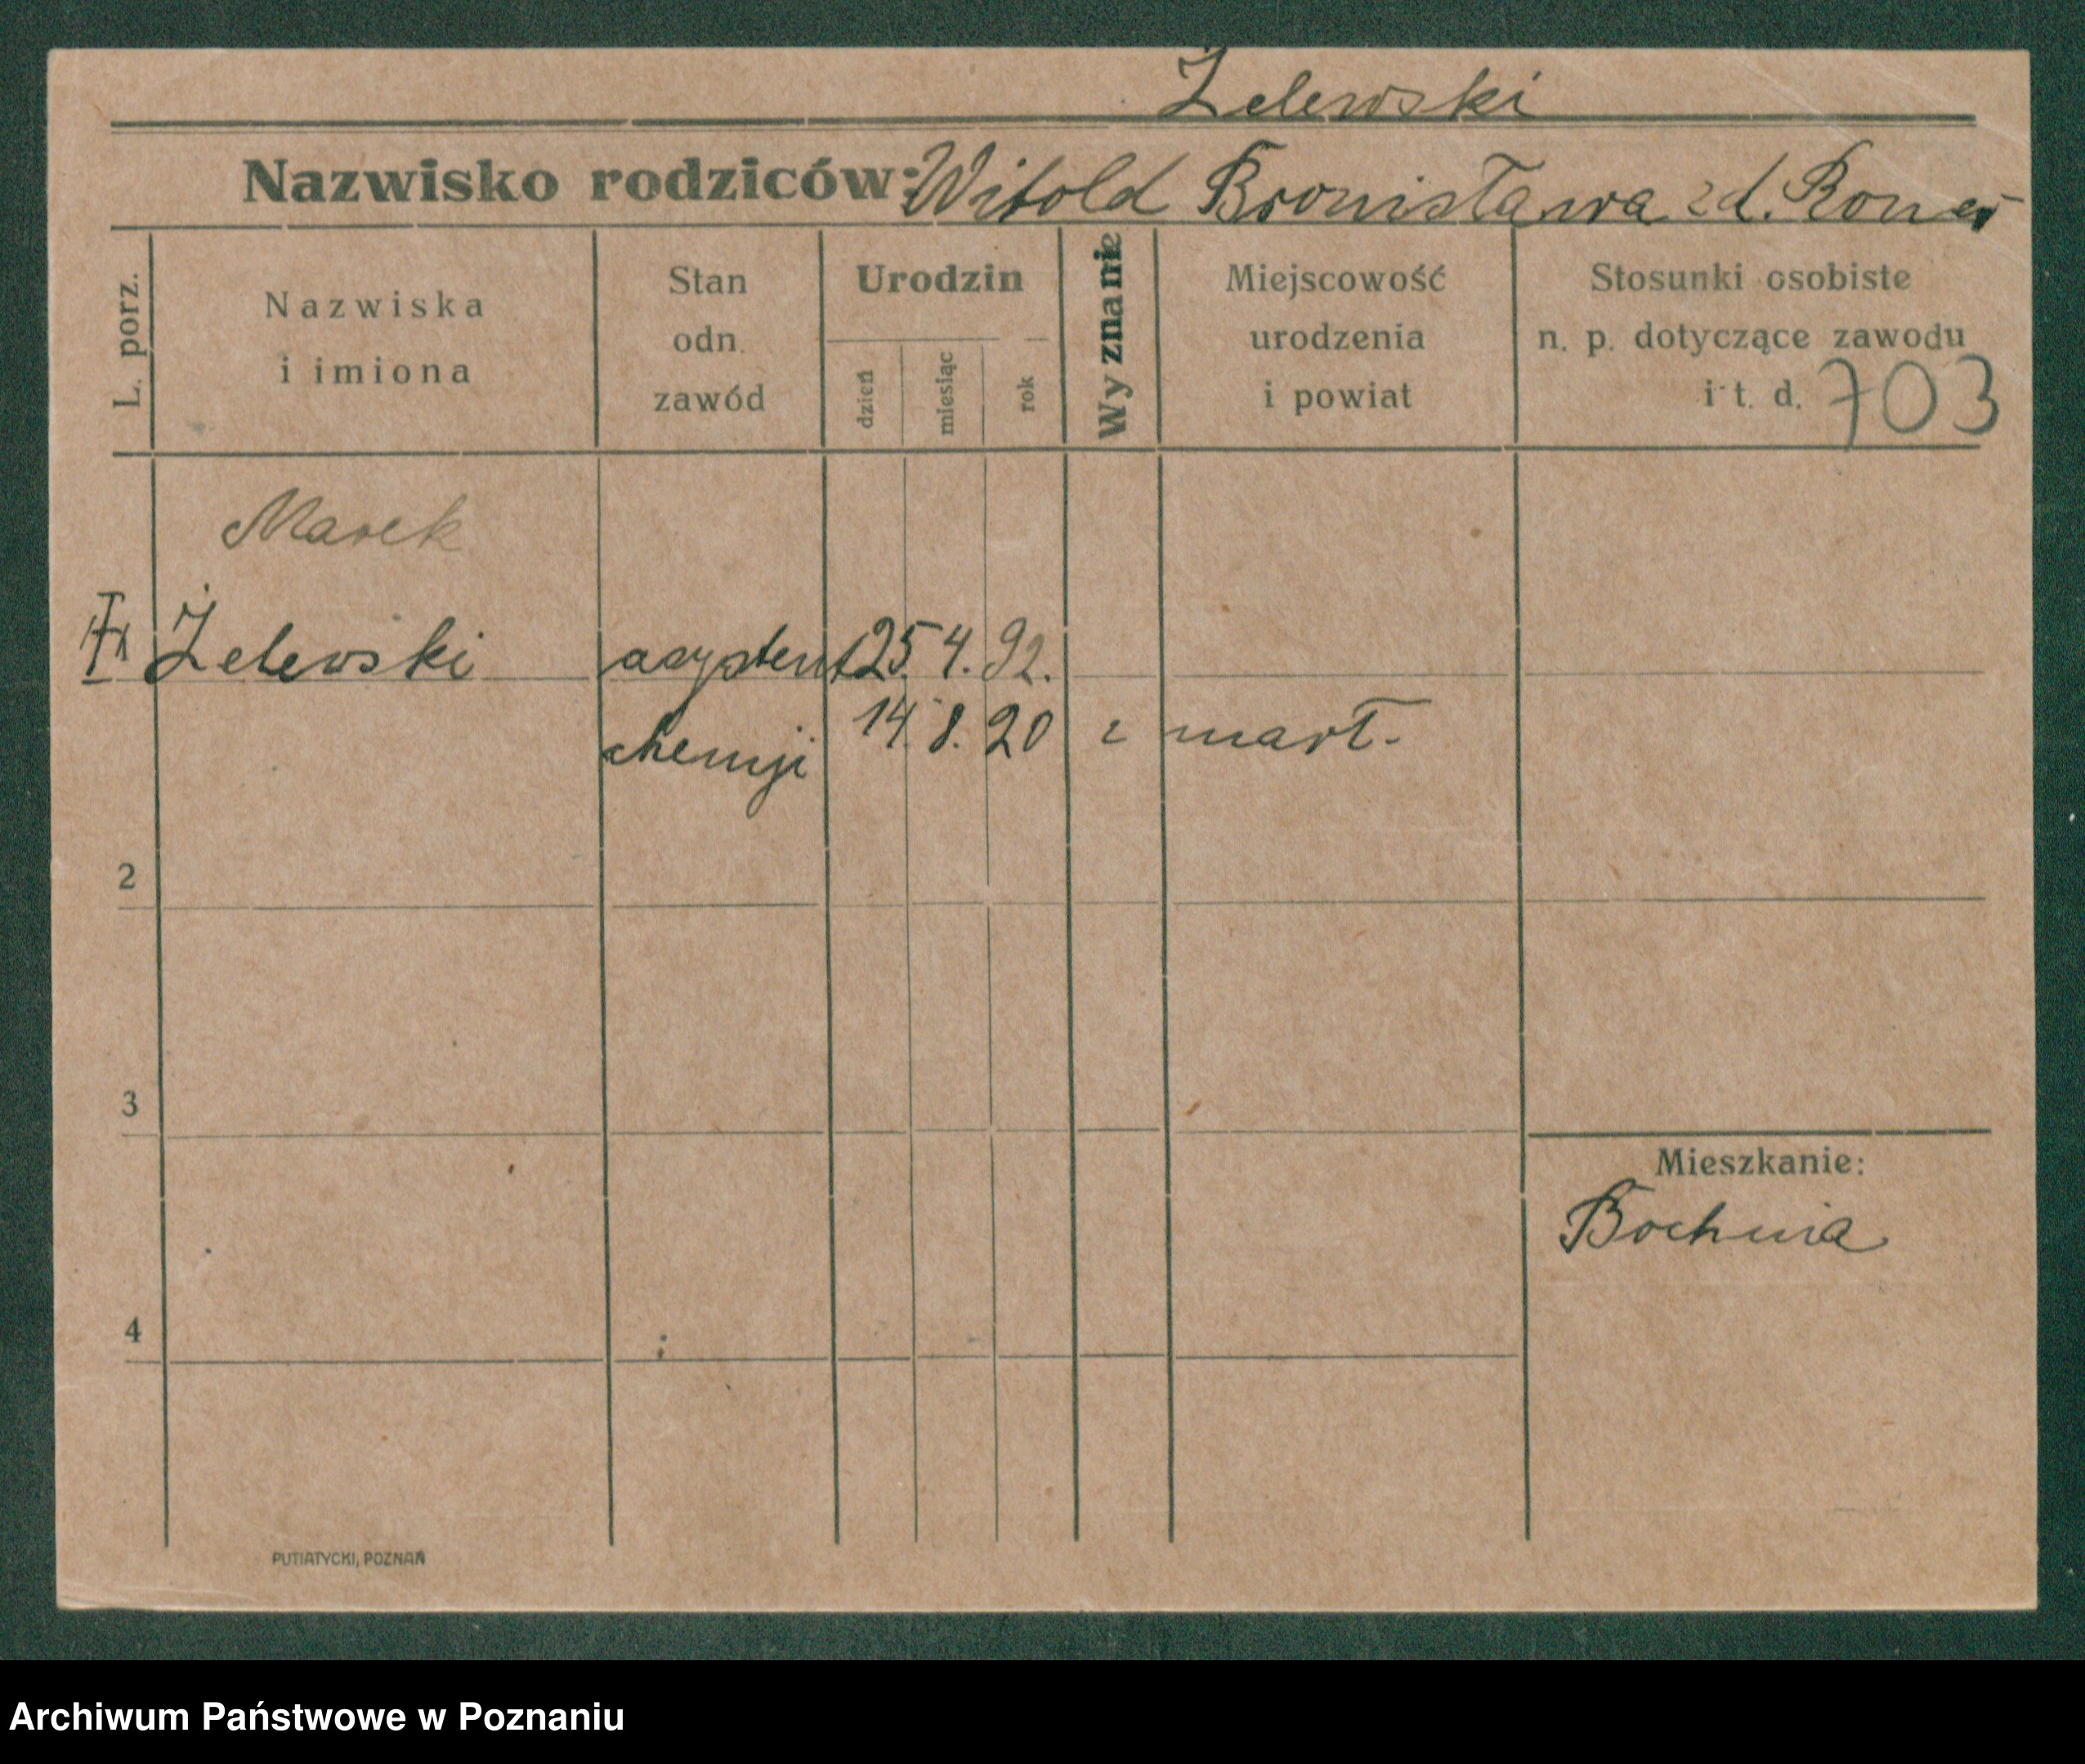 Żelewski
Nazwisko rodziców: Witold Bronisława z d. Roner
L. porz.
Nazwiska
i imiona
Stan
odn.
zawód
Urodzin
dzień
miesiąc
rok
Wyznanie
Miejscowość
urodzenia
i powiat
Stosunki osobiste
n. p. dotyczące zawodu
i t. d. 703
Marek
Żelewski asystent 25. 4. 92.
chemji 14. 8. 20 zmarł.
2
3
Mieszkanie:
Bochnia
4
PUTIATYCKI, POZNAŃ
Archiwum Państwowe w Poznaniu